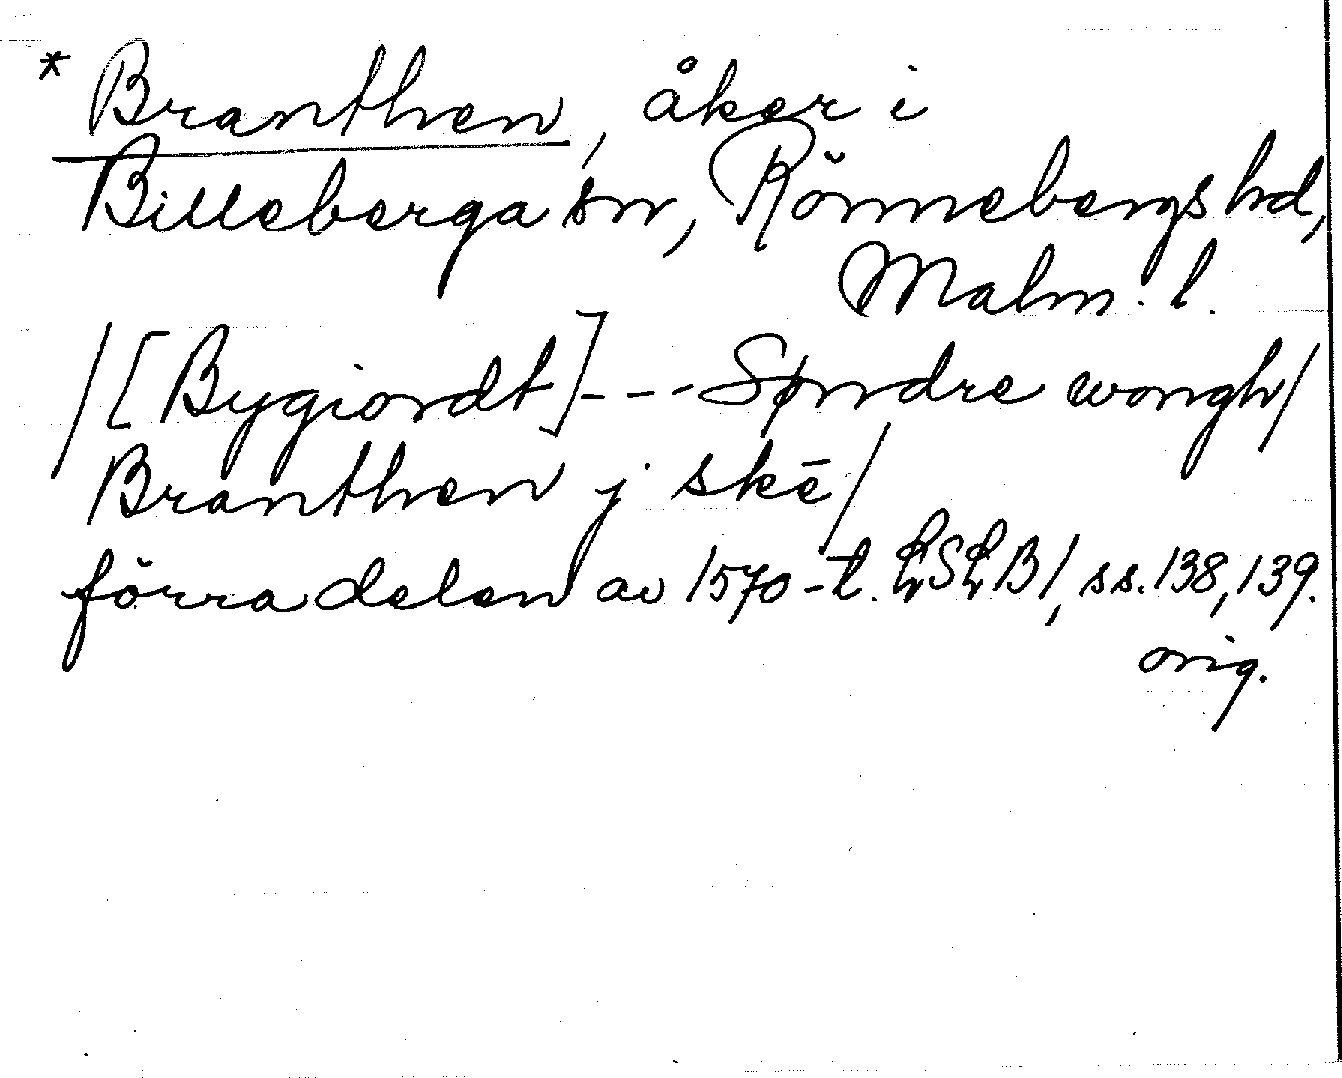 * Branthen, åker i
Billeberga sn, Rönnebergs hd,
Malm. l.
/[Bygiordt]---Søndre wongh/
Branthen j skē/
förra delen av 1570-t. LSLB1, ss. 138, 139.
orig.